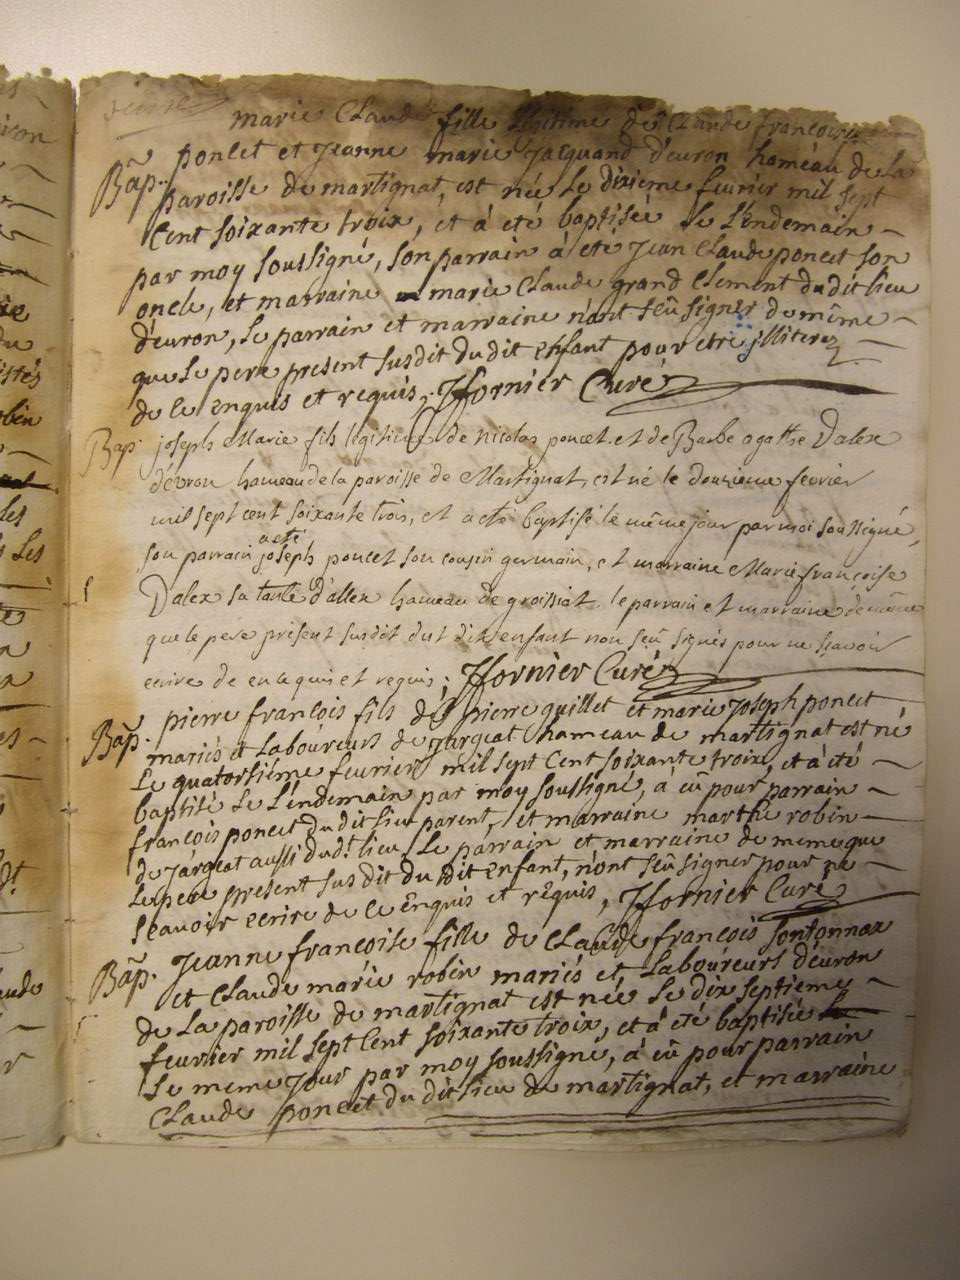 marie Claude fille légitime de Claude françois
Bap. poncet et Jeanne marie Jacquand d'évron hameau de La
paroisse de martignat, est née Le dixieme fevrier mil sept
Cent soixante troix, et à eté baptisée Le L'endemain
par moy soussigné, son parrain à eté Jean Claude poncet son
oncle, et marraine marie Claude grand Clement du dit lieu
d'évron, Le parrain et marraine n'ont seû signer de même
que Le pere present susdit du dit enfant pour etre illiterez
de ce enquis et requis, Jfornier Curé
Bap. joseph Marie fils légitime de Nicolas poncet et de Barbe agathe Dalex
d'évron hameau de la paroisse de Martignat, est né le douzieme fevrier
mil sept cent soixante trois, et a eté baptisé le même jour par moi soussigné,
son parrain a eté joseph poncet son cousin germain, et marraine Marie françoise
Dalex sa tante d'allex hameau de groissiat, le parrain et marraine de même
que le pere présent susdit du dit enfant non seû signés pour ne sçavoir
ecrire de ce enquis et requis ; Jfornier Curé
Bap. pierre françois fils de pierre quillet et marie Joseph poncet
mariés et Laboureurs de Jargeat hameau de martignat est né
Le quatorsiéme fevrier mil sept Cent soixante troix, et à été
baptisé Le L'endemain par moy soussigné, à eû pour parrain
françois poncet du dit lieu parent, et marraine marthe robin
de Jargeat aussi dud.t lieu, Le parrain et marraine de meme que
Le pere present susdit du dit Enfant, n'ont seû signer pour ne
scavoir ecrire de ce Enquis et requis, Jfornier Curé
Bap. Jeanne françoise fille de Claude françois sontonnax
et Claude marie robin mariés et Laboureurs d'évron
de La paroisse de martignat est née Le dix septieme
fevrier mil sept Cent soixante troix, et à été baptisée
Le meme Jour par moy soussigné, à eû pour parrain
Claude poncet du dit lieu de martignat, et marraine